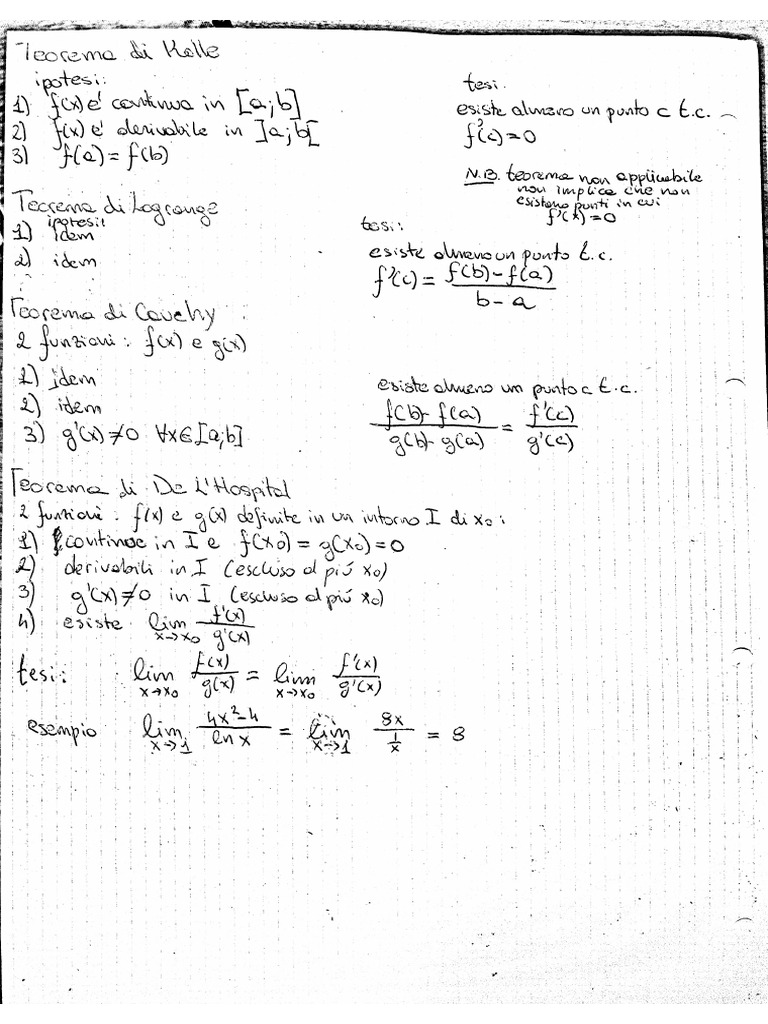 Teorema di Rolle
ipotesi:
1) f(x) è continua in [a;b]
2) f(x) è derivabile in ]a;b[
3) f(a) = f(b)
tesi:
esiste almeno un punto c t.c.
f'(c) = 0
N.B. teorema non applicabile
non implica che non
esistono punti in cui
f'(x) = 0
Teorema di Lagrange
ipotesi:
1) idem
2) idem
tesi:
esiste almeno un punto t.c.
f'(c) = (f(b) - f(a)) / (b - a)
Teorema di Cauchy
2 funzioni: f(x) e g(x)
1) idem
2) idem
3) g'(x) ≠ 0 ∀x∈[a;b]
esiste almeno un punto c t.c.
(f(b) - f(a)) / (g(b) - g(a)) = f'(c) / g'(c)
Teorema di De L'Hospital
2 funzioni: f(x) e g(x) definite in un intorno I di x₀:
1) continue in I e f(x₀) = g(x₀) = 0
2) derivabili in I (escluso al più x₀)
3) g'(x) ≠ 0 in I (escluso al più x₀)
4) esiste lim x→x₀ f'(x) / g'(x)
tesi: lim x→x₀ f(x) / g(x) = lim x→x₀ f'(x) / g'(x)
esempio lim x→1 (4x² - 4) / ln x = lim x→1 8x / (1/x) = 8